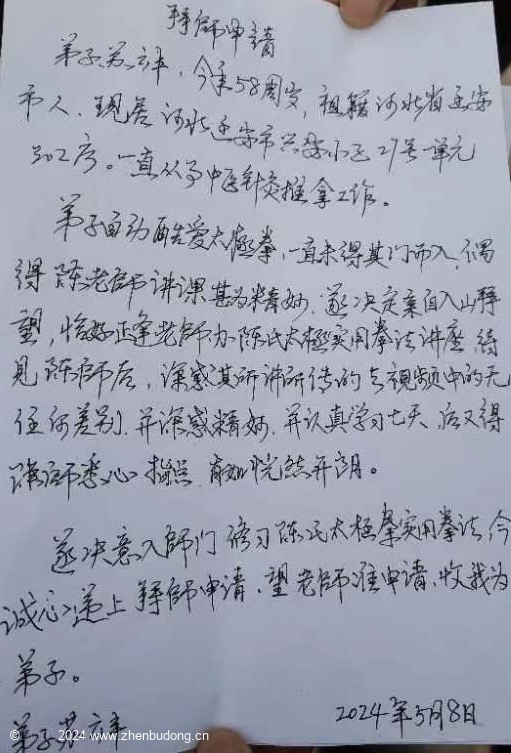 拜師申请
弟子苏立丰，今年58周岁，祖籍河北省迁安
市人，现居河北迁安市兴安小区27号一单元
302房。一直从事中医针灸推拿工作。
弟子自幼酷爱太極拳，一直未得其门而入，偶
得陈老師讲课甚为精妙，遂决定亲自入山拜
望，恰好正逢老師办陈氏太極实用拳法讲座，待
见陈師后，深感其所讲所传的与视频中的无
任何差别，并深感精妙，并认真学习七天，后又得
陈師悉心指点，有如恍然开朗。
遂决意入師门修习陈氏太極拳实用拳法，今
诚心递上拜師申请，望老師准申请，收我为
弟子。
弟子苏立丰
2024年5月8日
© 2024 www.zhenbudong.cn